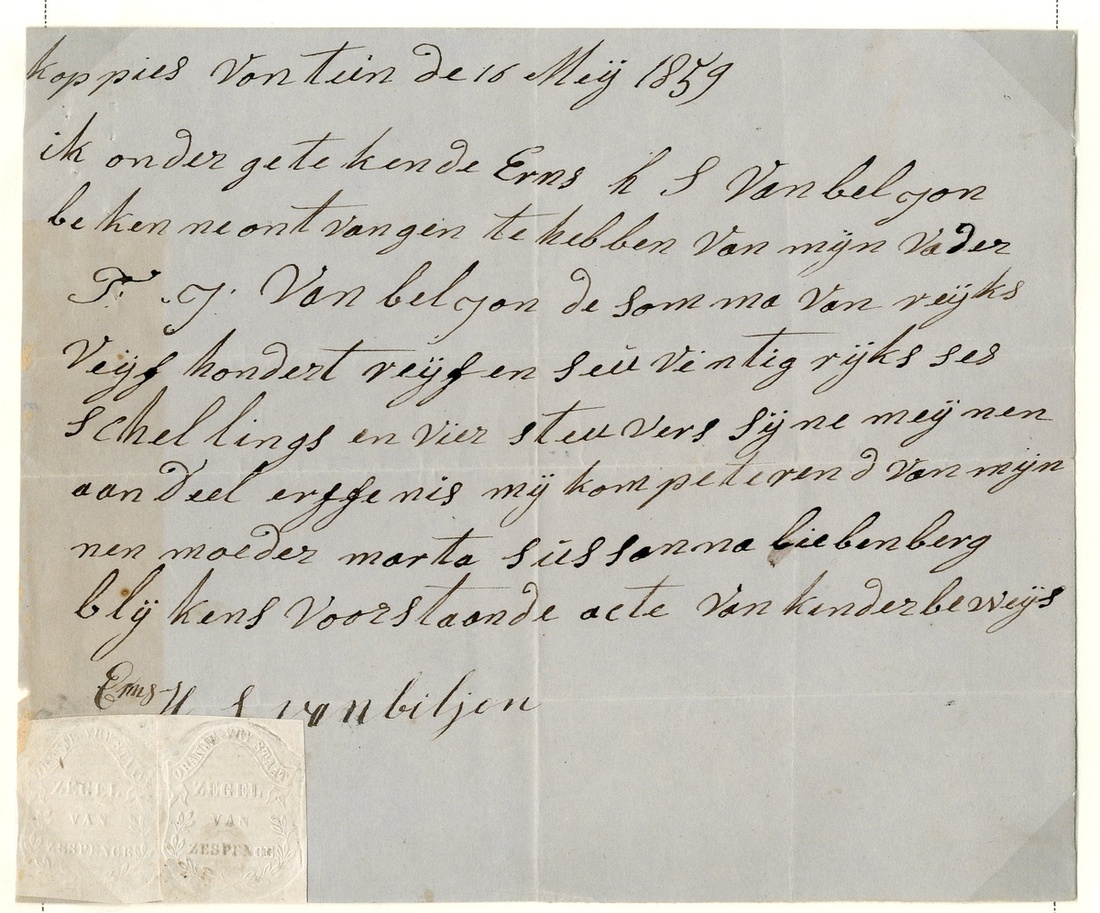 koppies Vontein de 16 Meij 1859
ik onder gete kende Erns h S Van bel jon
be ken ne ont vangen te hebben Van mijn Vader
F. J. Van bel jon de somma van reijks
Veijf hondert veijf en seu ventig rijks ses
schel lings en vier steu vers sijne meij nen
aan Deel erffenis mij kom pe te rend van mijn
nen moeder marta sussanna liebenberg
blij kens voor staande acte van kinderbeweijs
Erns H S van biljon
ORANJE VRY STAAT
ZEGEL
VAN
ZESPENCE
ORANJE VRY STAAT
ZEGEL
VAN
ZESPENCE